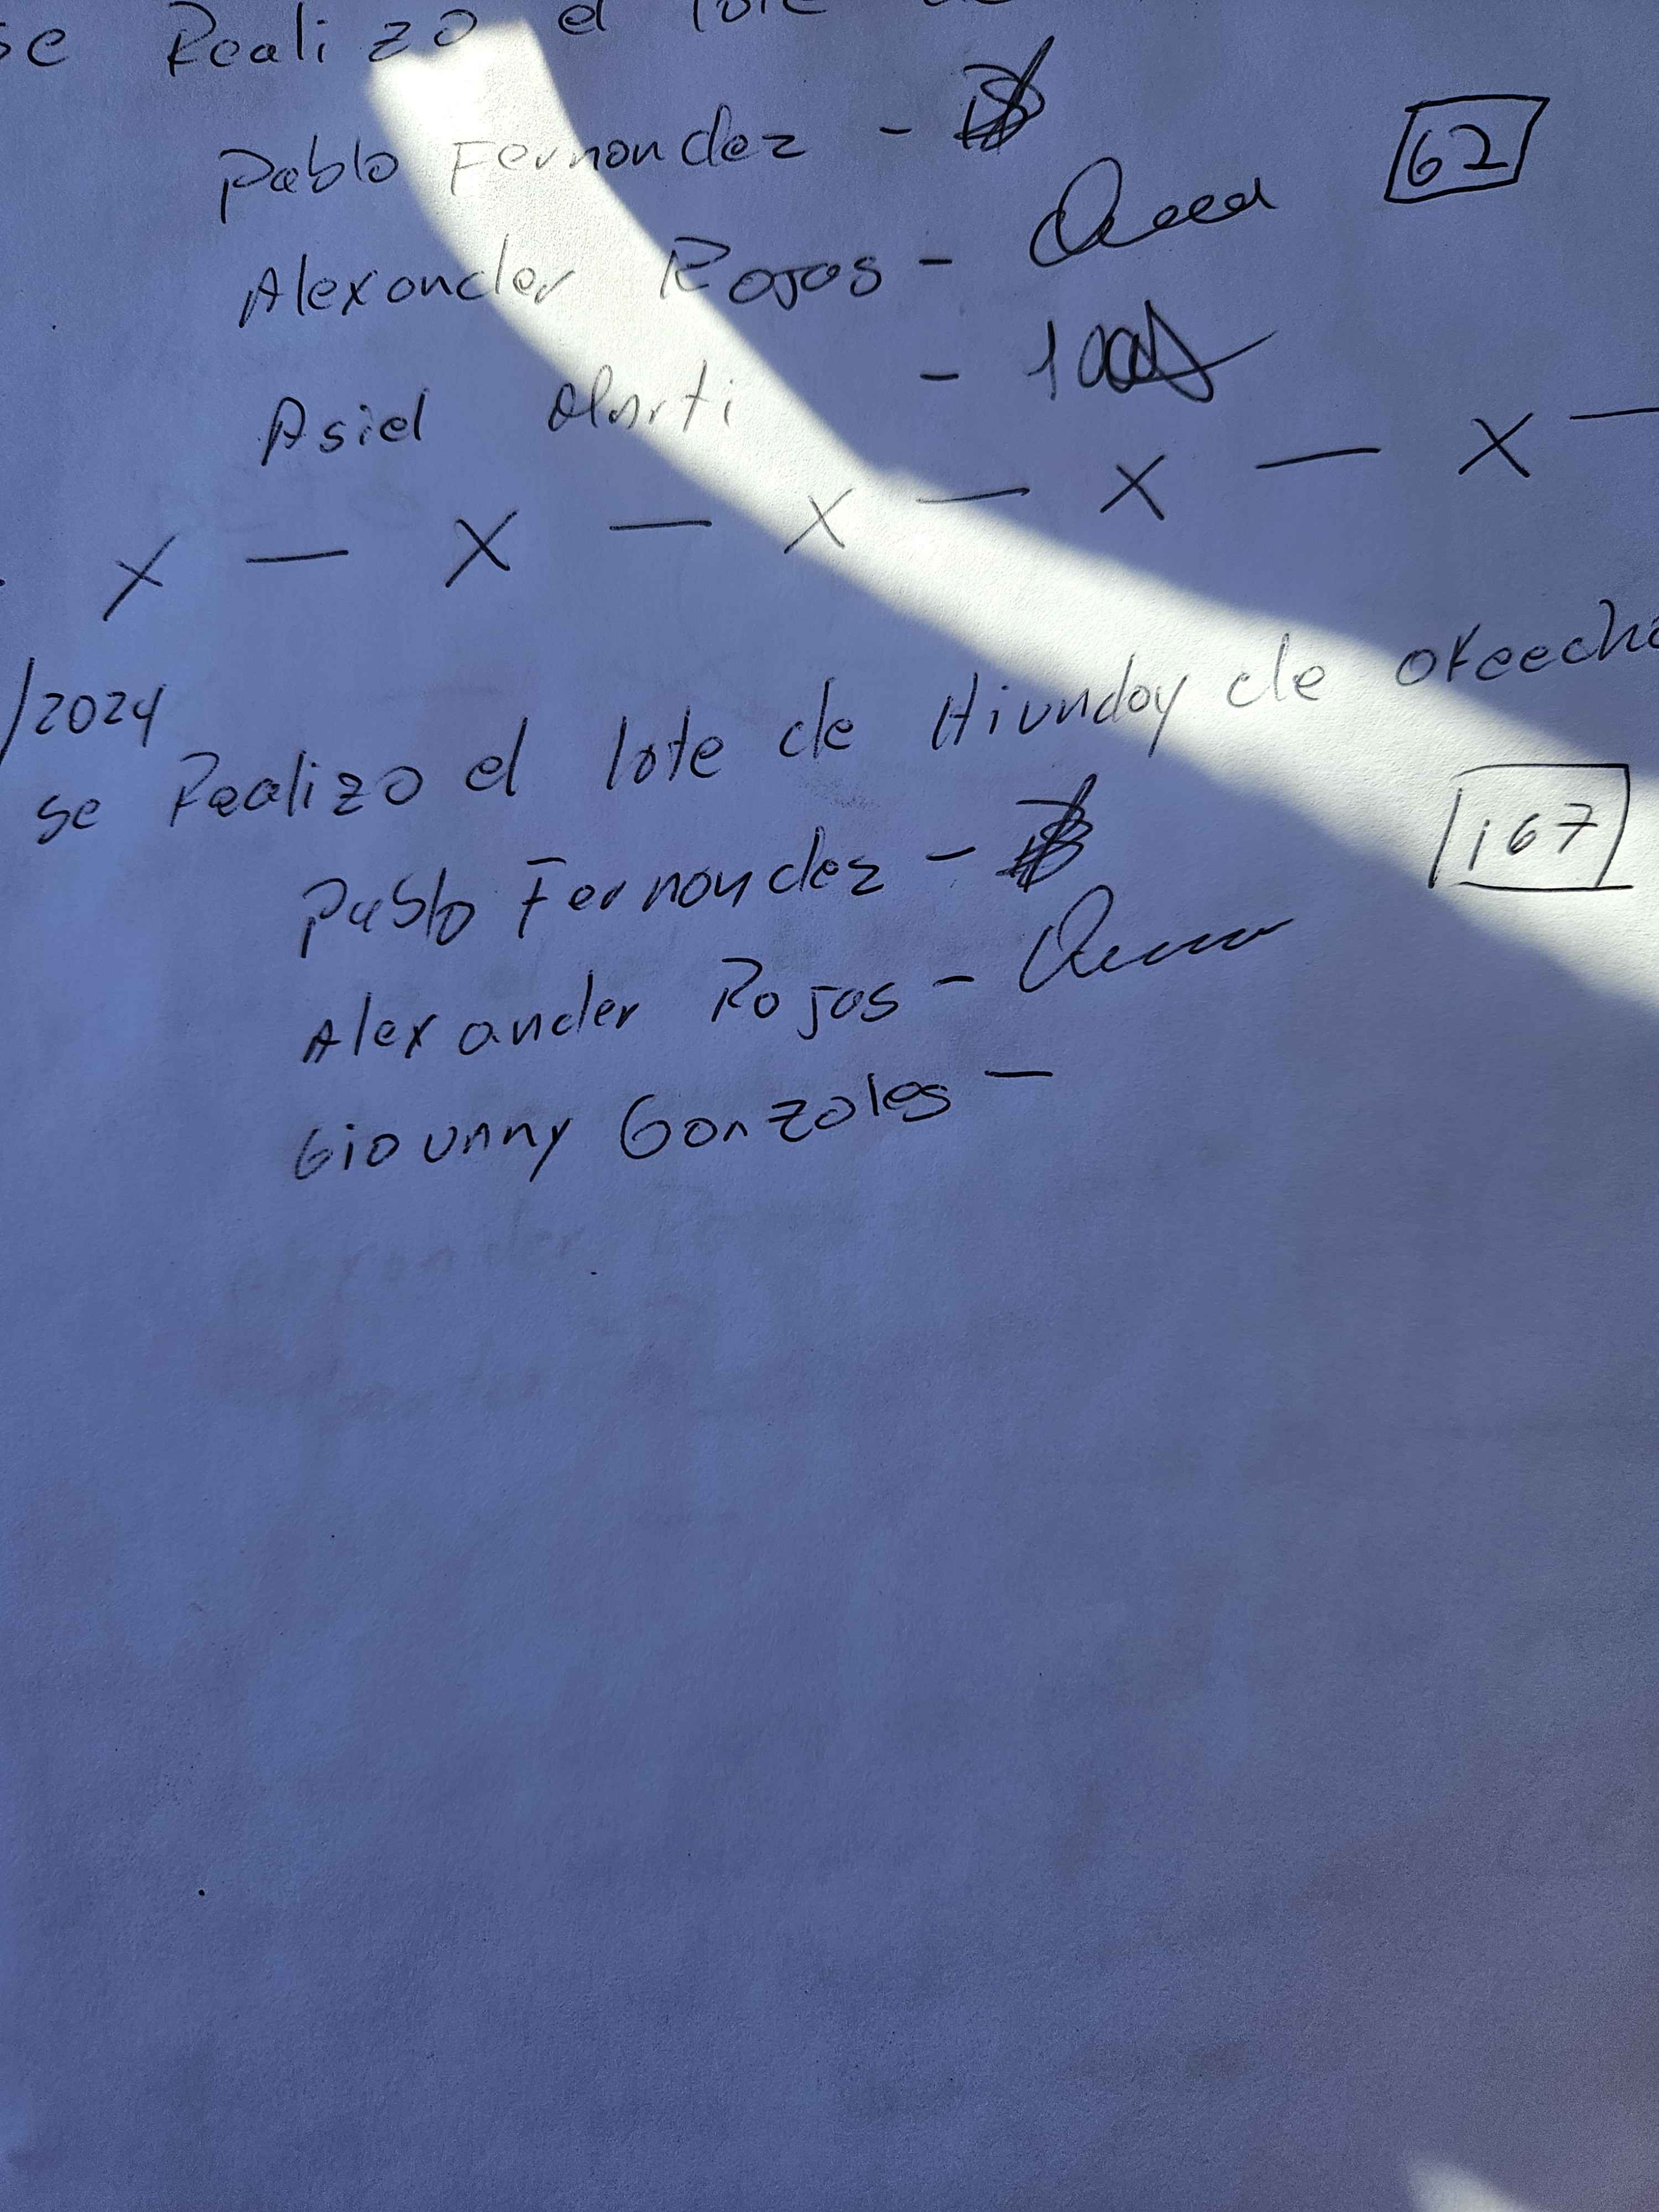 se Realizo el lote
Pablo Fernondez -
62
Alexonder Rojos -
Asiel -
x — x — x — x — x —
/2024
se Realizo el lote de Hiunday de okeecho
167
Pablo Fernondez -
Alexander Rojos -
Giovnny Gonzoles -